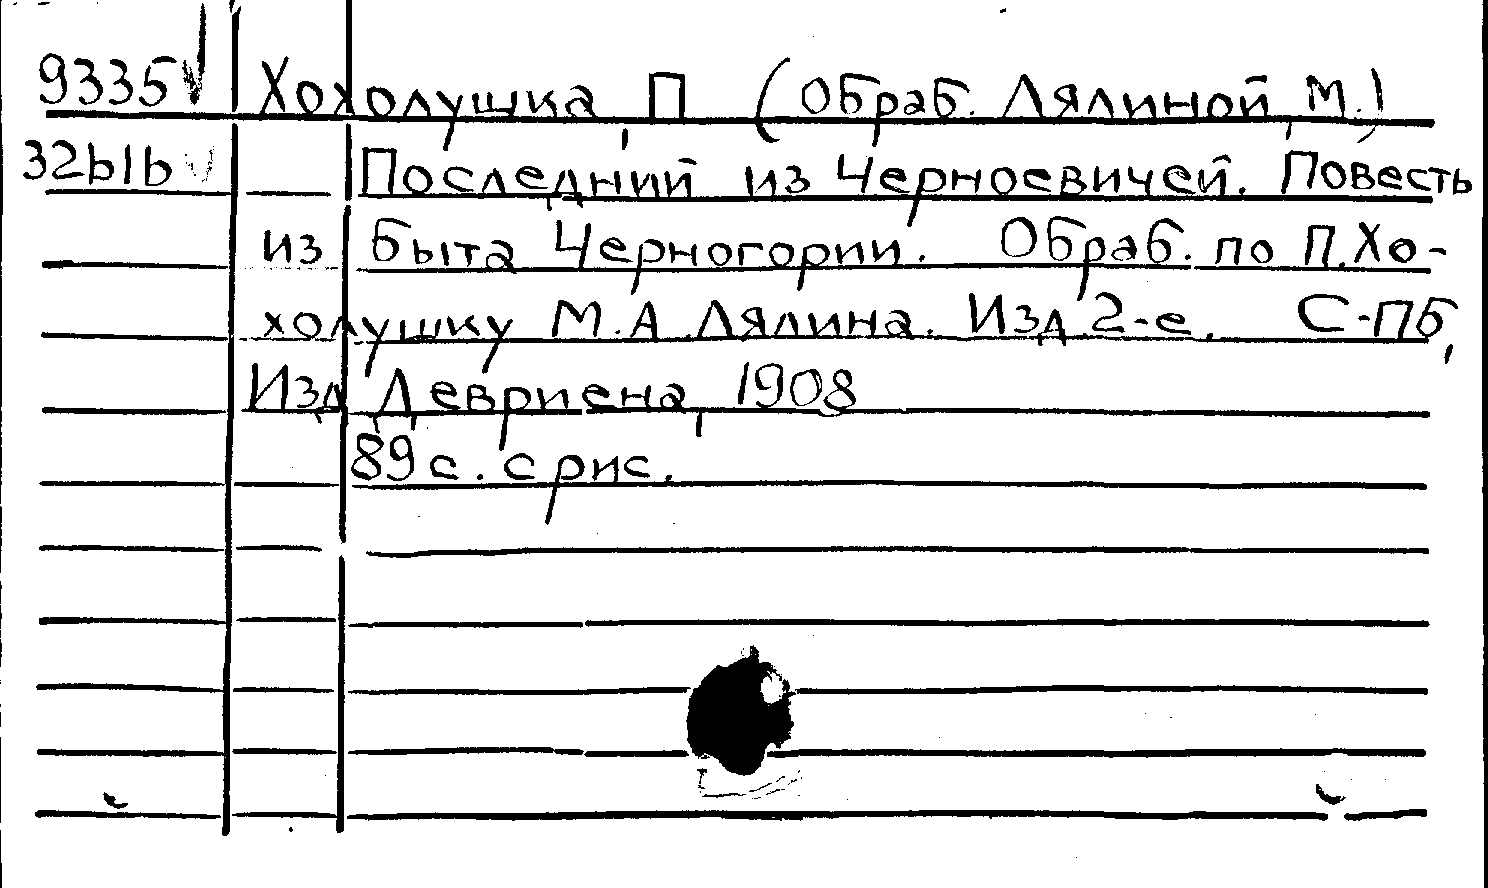 9335 Хохолушка, П (Обраб. Лялиной, М.)
32b1b Последний из Черноевичей. Повесть
из быта Черногории. Обраб. по П.Хо-
холушку М.А.Лялина. Изд 2-е. С-ПБ,
Изд Девриена, 1908
89 с. с рис.